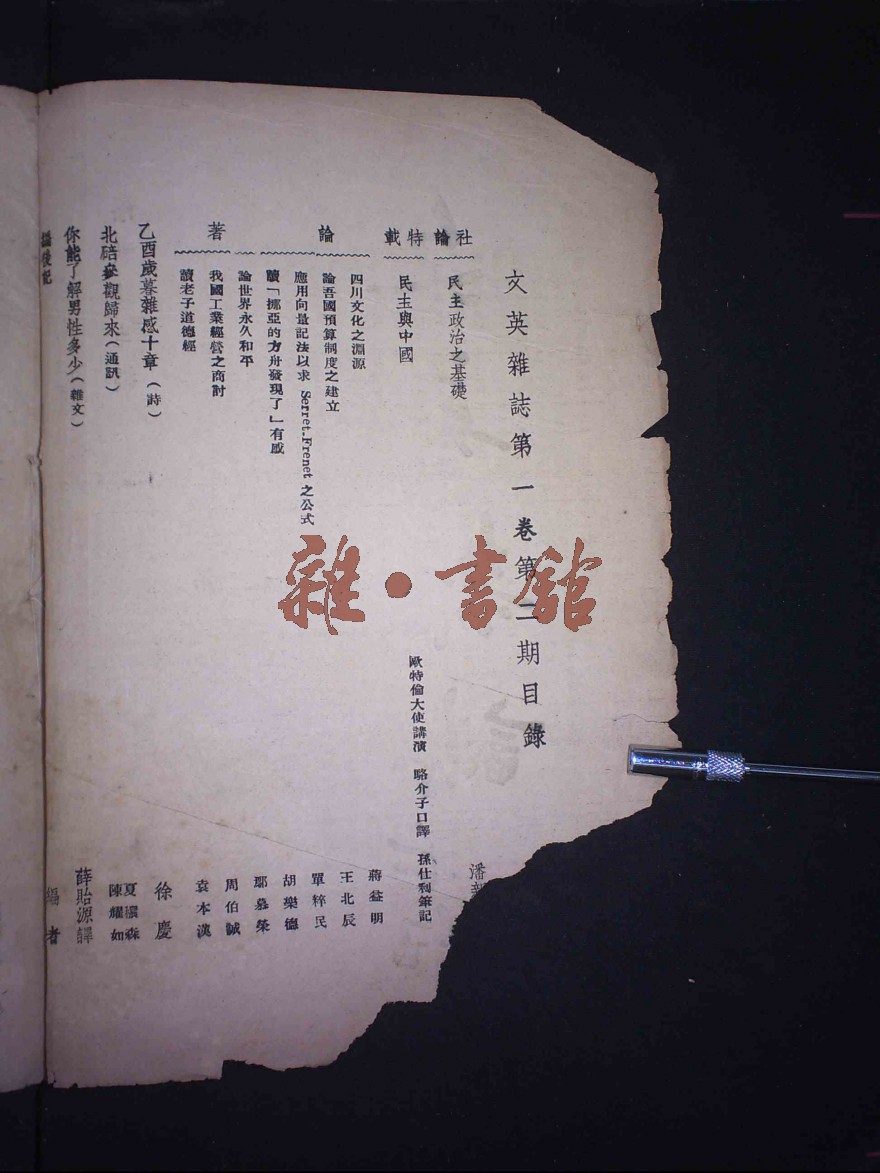 文英雜誌第一卷第二期目錄
社論
民主政治之基礎
潘
特載
民主與中國
歐特倫大使講演 略介子口譯 孫仕利筆記
論著
四川文化之淵源
蔣益明
論吾國預算制度之建立
王北辰
應用向量記法以求 Serret-Frenet 之公式
單粹民
讀「挪亞的方舟發現了」有感
胡樂德
論世界永久和平
鄢慕榮
我國工業經營之商討
周伯誠
讀老子道德經
袁本漢
乙酉歲暮雜感十章(詩)
徐慶
北碚參觀歸來(通訊)
夏森
陳耀如
你能了解男性多少(雜文)
薛貽源譯
編後記
編者
雜·書館